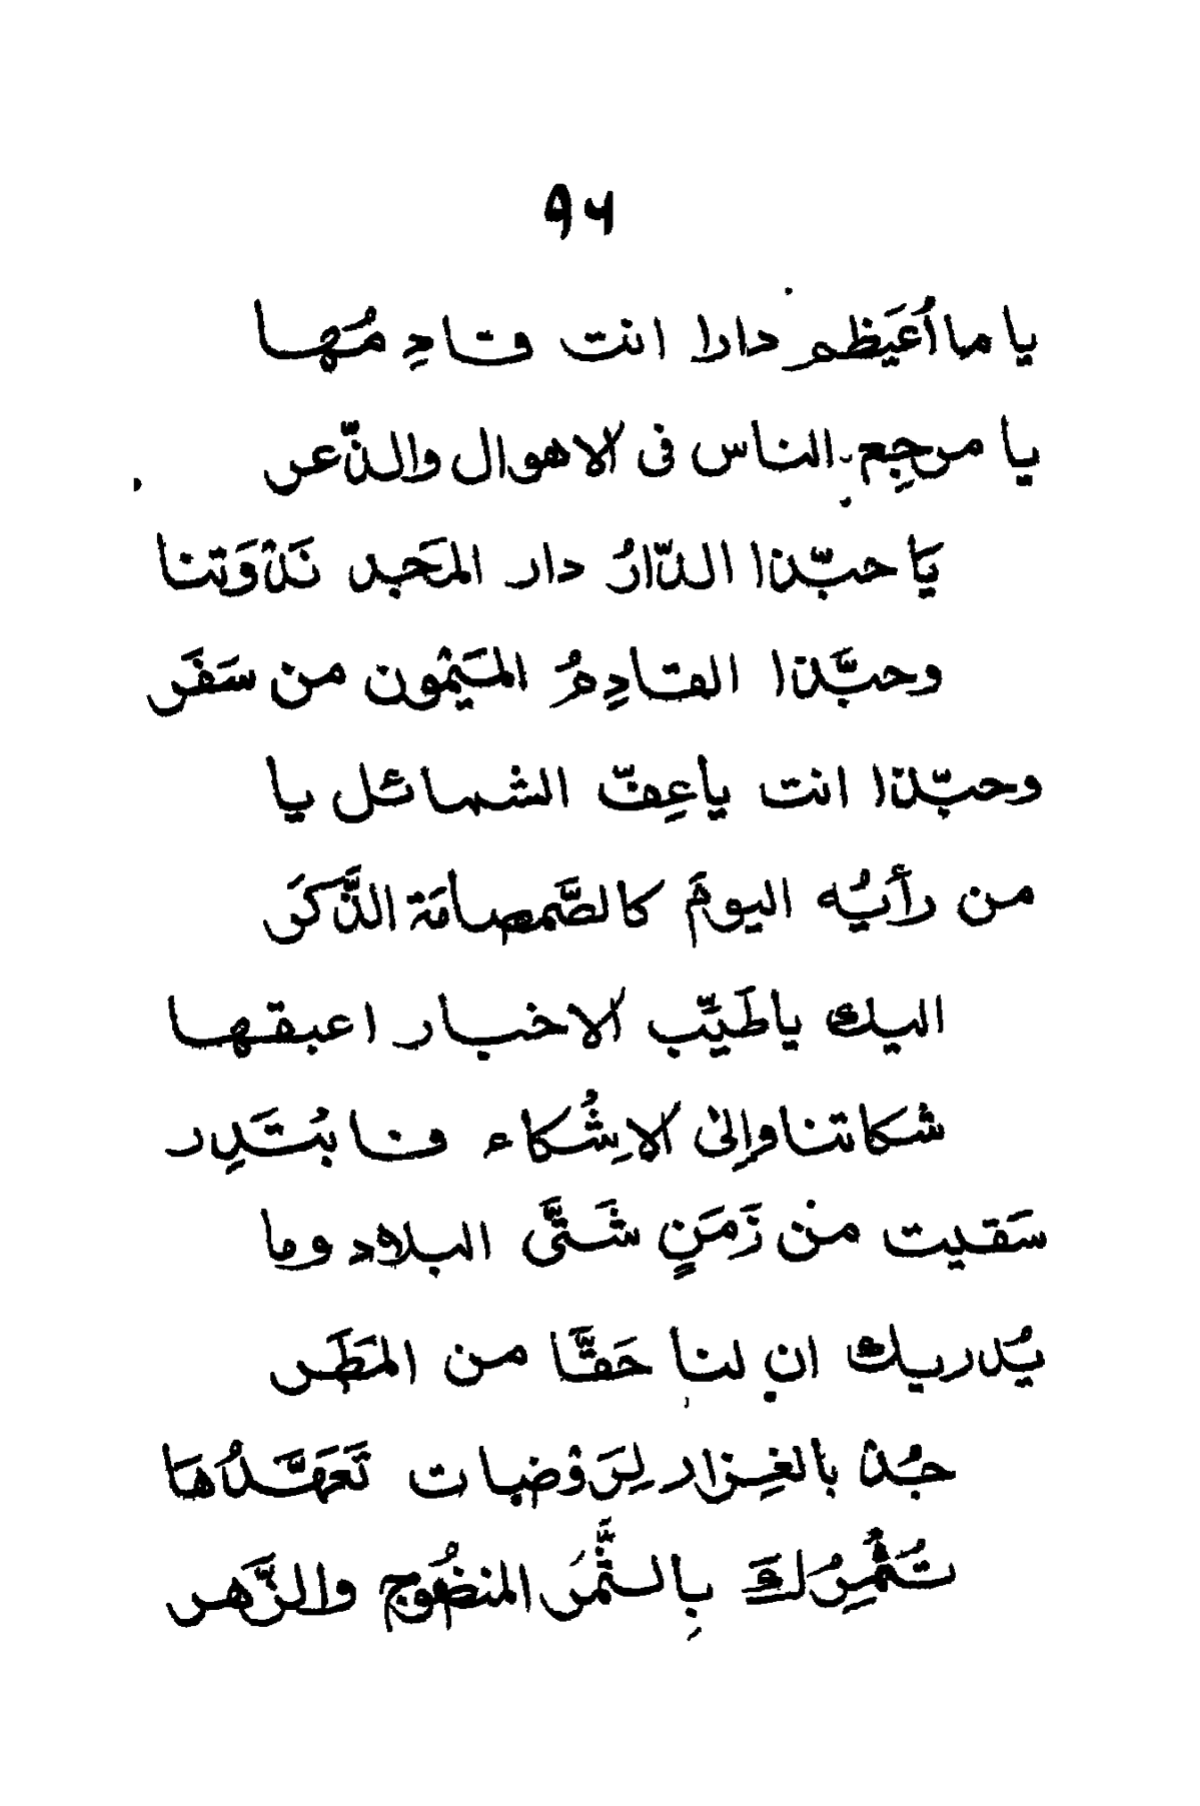 ٩٤
يا ما أُعَيظم دارا انت قادِ مُها
يا مرجِع الناس فى الاهوال والذّعر
يَا حبّذا الدّارُ دار المَجد نَدْوَتنا
وحبَّذا القادِمُ المَيْمون من سَفَر
وحبّذا انت ياعِفّ الشمائل يا
من رأيُه اليومَ كالصَّمصامَة الذَّكَر
اليك ياطَيِّب الاخبار اعبقها
شكاتنا وإلى الاِشُكاء فابتَدِر
سَقيت منْ زَمَنٍ شَتَّى البلاد وما
يُدريك ان لنا حَقَّا من المَطَر
جُدْ بالغِزار لِرَوْضات تَعَهَّدُهَا
تُثْمِرُ لكَ بالثَّمَر المنضُوج والزَّهر